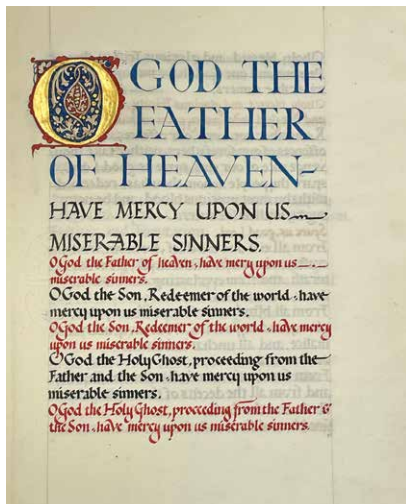 O GOD THE
FATHER
OF HEAVEN-
HAVE MERCY UPON US
MISERABLE SINNERS.
O God the Father of heaven, have mercy upon us
miserable sinners.
O God the Son, Redeemer of the world, have
mercy upon us miserable sinners.
O God the Son, Redeemer of the world, have mercy
upon us miserable sinners.
O God the Holy Ghost, proceeding from the
Father and the Son, have mercy upon us
miserable sinners.
O God the Holy Ghost, proceeding from the Father &
the Son, have mercy upon us miserable sinners.